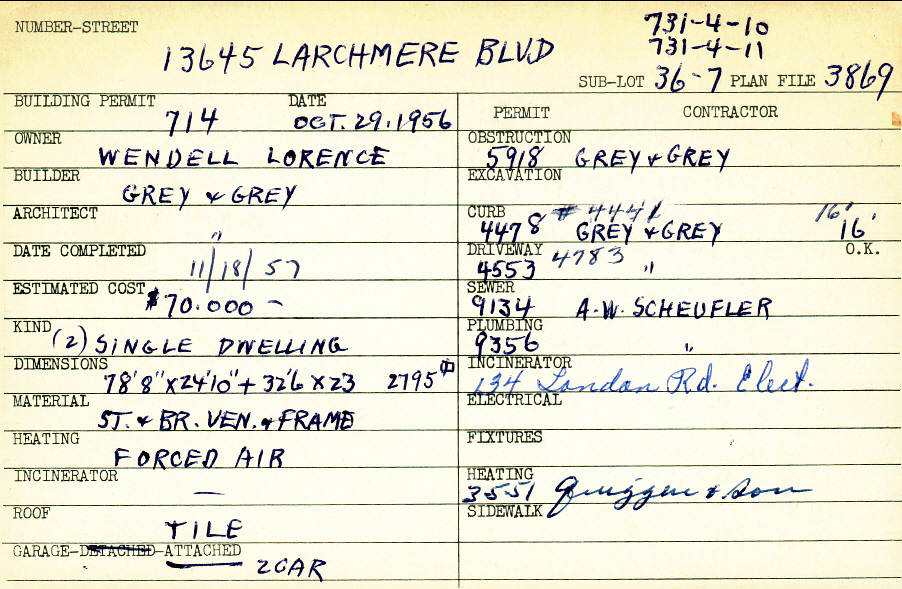 NUMBER-STREET
731-4-10
731-4-11
13645 LARCHMERE BLVD
SUB-LOT 36-7 PLAN FILE 3869
BUILDING PERMIT 714 DATE OCT. 29. 1956
OWNER WENDELL LORENCE
BUILDER GREY & GREY
ARCHITECT "
DATE COMPLETED 11/18/57
ESTIMATED COST $70.000 —
KIND (2) SINGLE DWELLING
DIMENSIONS 78'8"X24'10"+32'6X23 2795
MATERIAL ST. & BR. VEN. & FRAME
HEATING FORCED AIR
INCINERATOR —
ROOF TILE
GARAGE-DETACHED-ATTACHED 2 CAR
PERMIT CONTRACTOR
OBSTRUCTION 5918 GREY & GREY
EXCAVATION
CURB # 4441 16'
4478 GREY & GREY 16'
O.K.
DRIVEWAY 4553 4783 "
SEWER 9134 A.W. SCHEUFLER
PLUMBING 9356 "
INCINERATOR
134 London Rd. Elect.
ELECTRICAL
FIXTURES
HEATING 3551 & Son
SIDEWALK